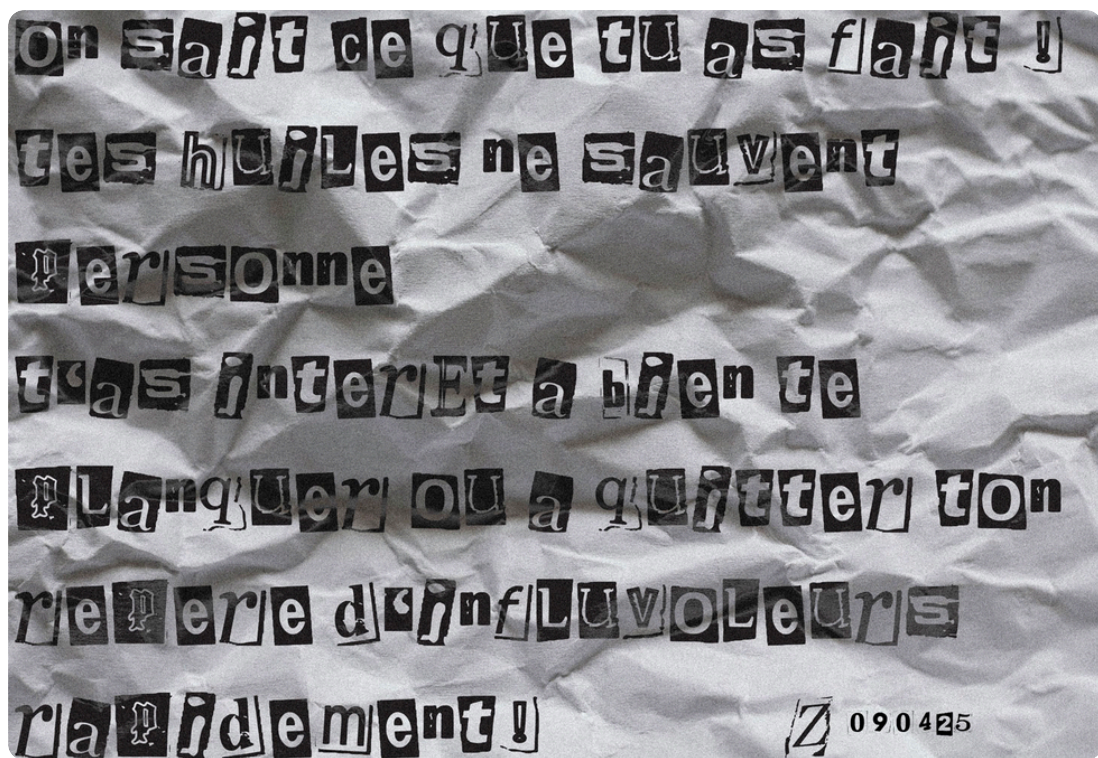 On sait ce que tu as fait !
tes huiles ne sauvent
personne
t'as interEt a bien te
planquer ou a quitter ton
repere d'influvoleurs
rapidement !
Z 090425